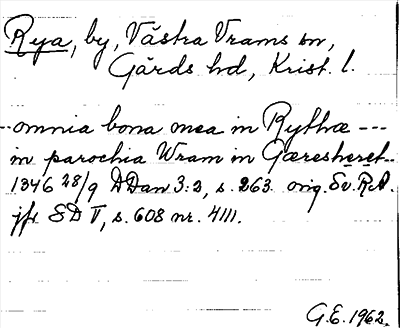 Rya, by, Västra Vrams sn,
Gärds hd, Krist. l.
-- omnia bona mea in Rythæ ---
in parochia Wram in Gæresheret--
1346 28/9 DDan 3:2, s. 263. orig. Sv. R.A.
jfr SD V, s. 608 nr. 4111.
G.E. 1962.